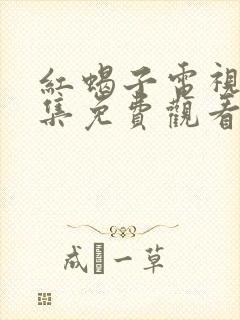 紅蝎子電視
集免費觀看
成一草